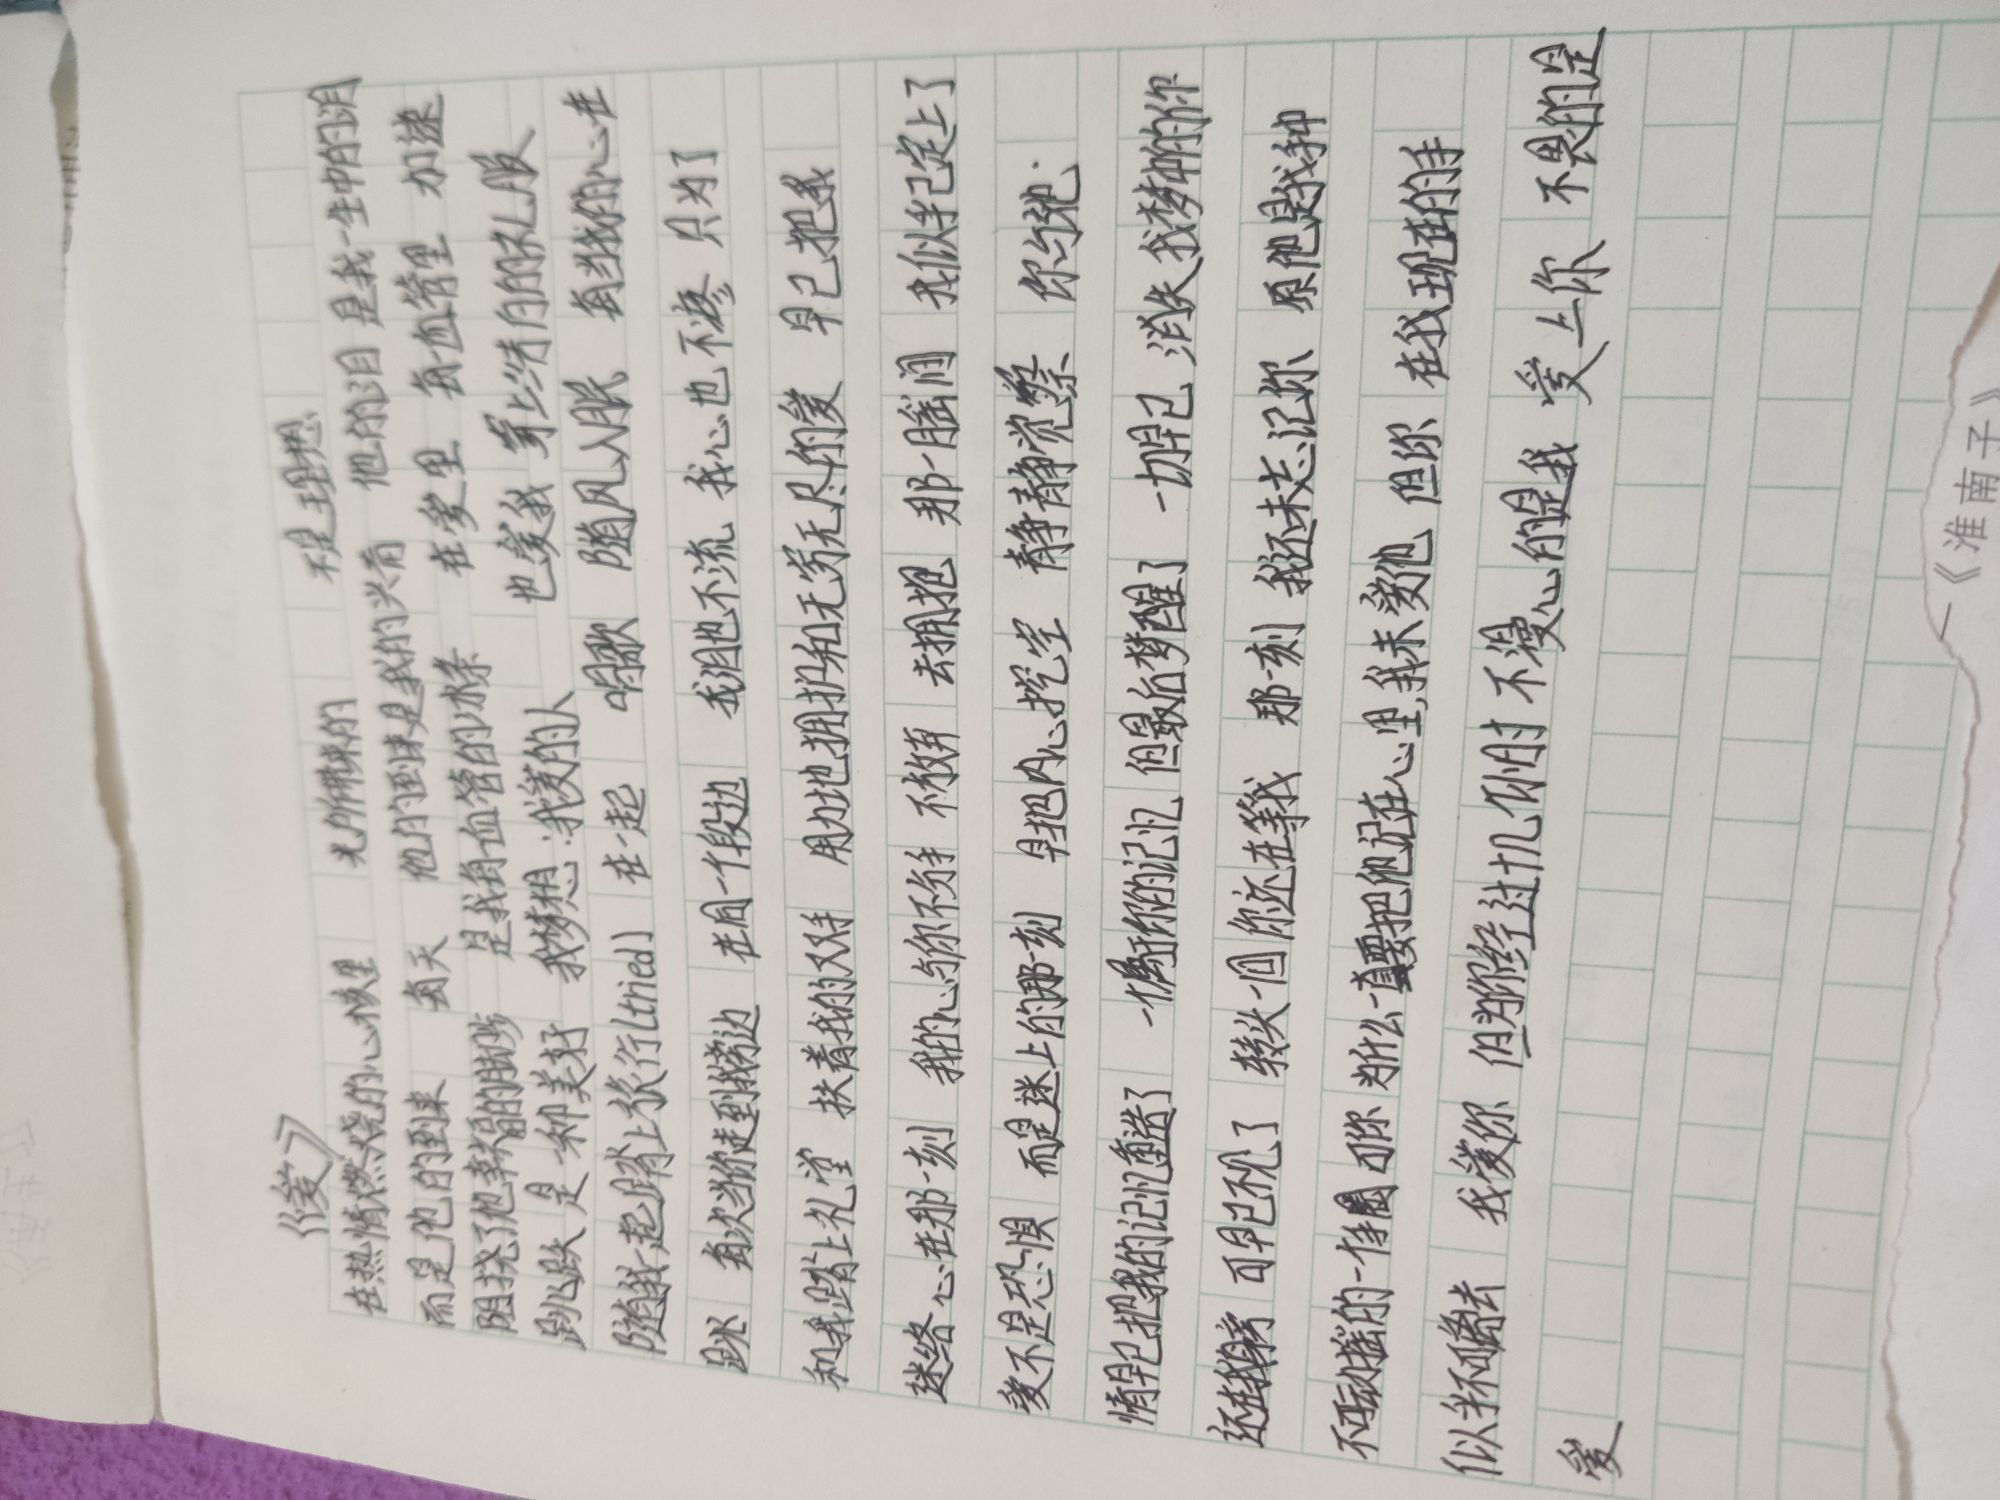 《爱》
在热情燃烧的心坎里 光所带来的 不是理想
而是他的到来 每天 他的到来是我的兴奋 他的泪 是我一生中的泪
阻挠了他幸福的脚步 是我每血管的冰条 在爱里 每血管里 加速
跳跃 是一种美好 我梦想:我爱的人 也爱我 穿上结自的婚礼服
随我一起踏上旅行(tried) 在一起 唱歌 随风入眠 每当我的心在
跳 每次当你走到我旁边 在同一个段边 我泪也不流 我心也不疼 只为了
和我踏上礼堂 扶着我的双手 用力地拥抱和无穷无尽的爱 早已把我
迷络 心在那一刻 我的心与你不分手 不放弃 去拥抱 那一瞬间 我似乎已定上了
爱不是恐惧 而是迷上的那一刻 早把内心挖空 静静
情早已把我的记忆重造了 一偶你的记忆 但最后梦醒了 一切早已 消失 我梦中的你
还在我身旁 可早已不见了 转头一回 你还在等我 那一刻 我还未忘记你 原他是我种
不可动摇的一件 可你 为什么一直要把他记在心里,我未爱他 但你 在我现在的手
似我不可离去 我爱你 但为你经过十几个小时 不漫心的是我 爱上你 不畏的是
爱
—《淮南子》